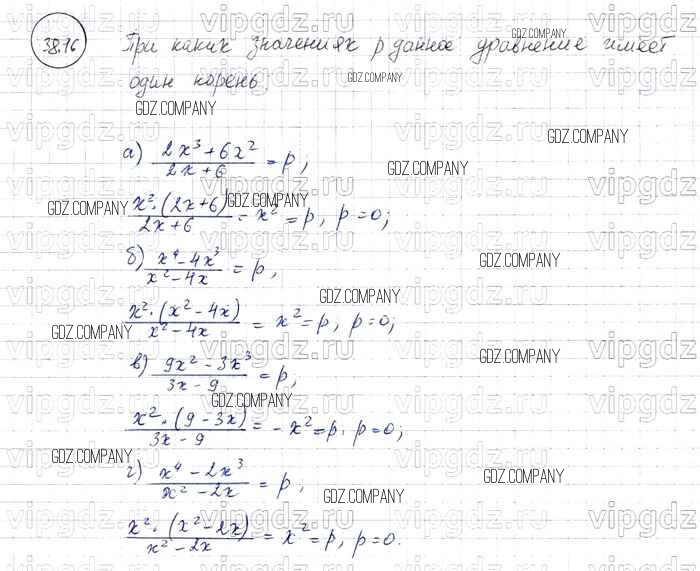 38.16 При каких значениях p данное уравнение имеет
один корень:
а) (2x³ + 6x²)/(2x + 6) = p,
(x² · (2x + 6))/(2x + 6) = x² = p, p = 0;
б) (x⁴ - 4x³)/(x² - 4x) = p,
(x² · (x² - 4x))/(x² - 4x) = x² = p, p = 0;
в) (9x² - 3x³)/(3x - 9) = p,
(x² · (9 - 3x))/(3x - 9) = - x² = p. p = 0;
г) (x⁴ - 2x³)/(x² - 2x) = p,
(x² · (x² - 2x))/(x² - 2x) = x² = p, p = 0.
GDZ.COMPANY
vipgdz.ru